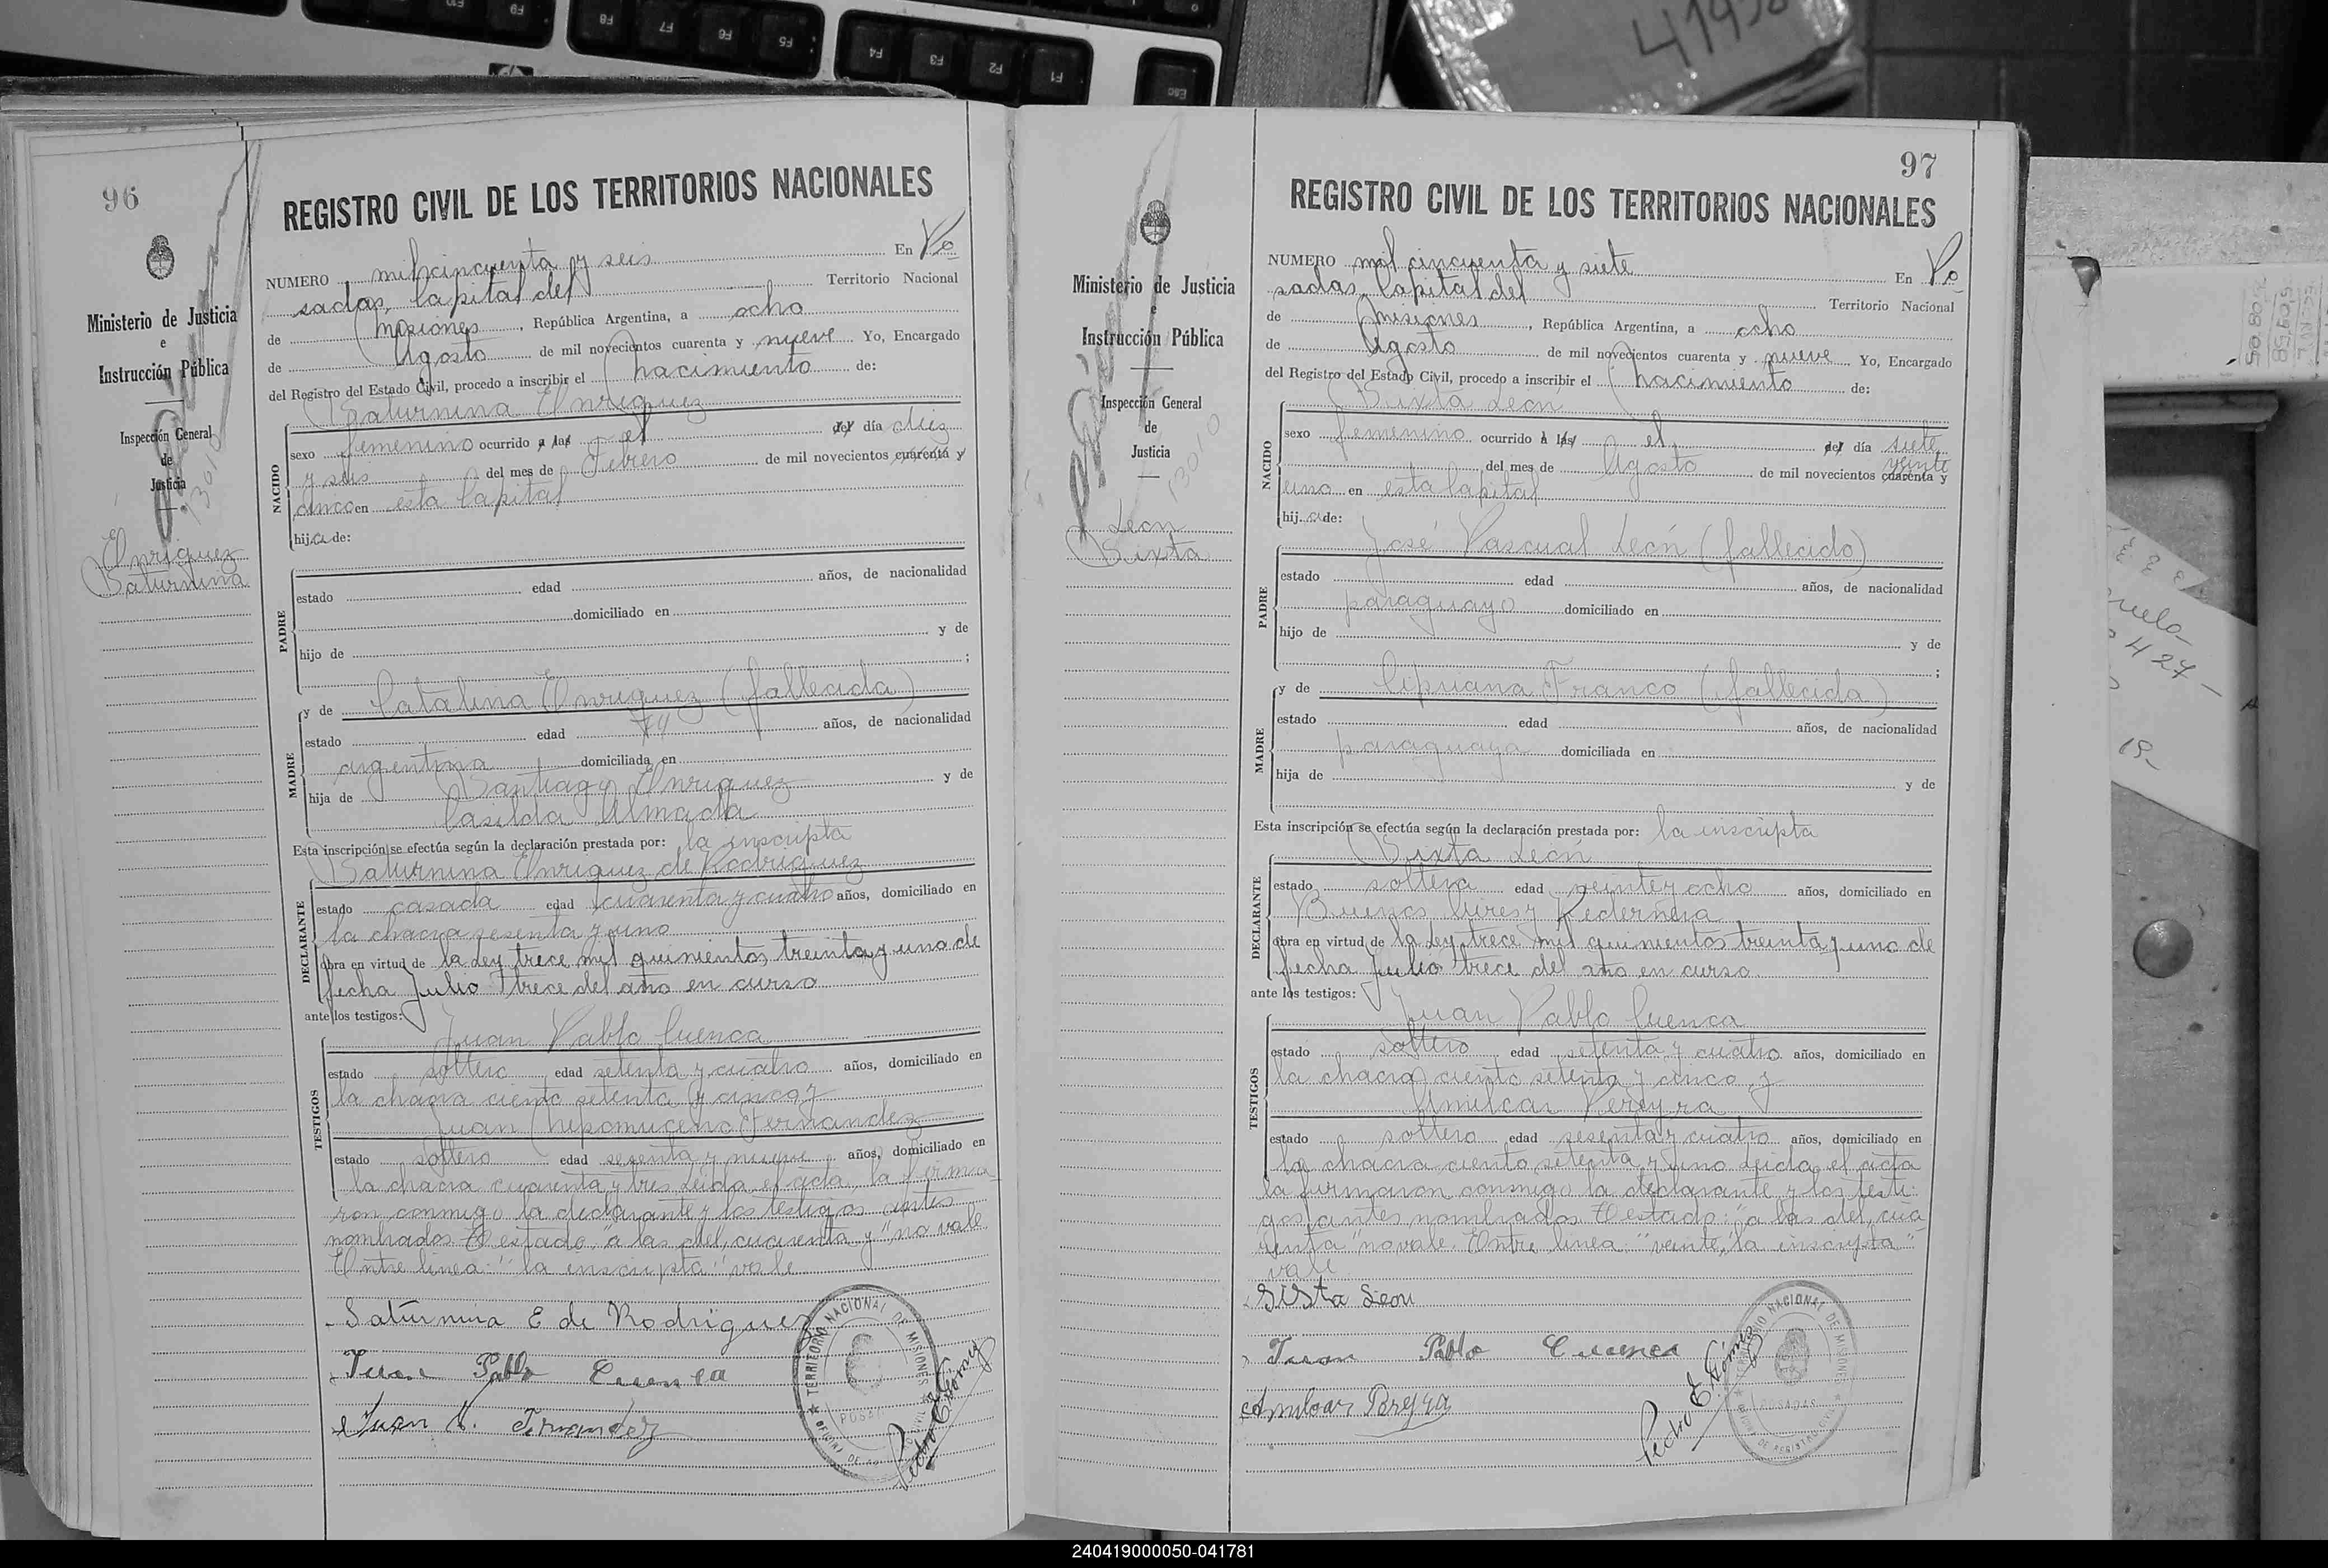 F9
F8
F7
F6
F5
F4
F3
F2
F1
Esc
96
Ministerio de Justicia
e
Instrucción Pública
Inspección General
de
Justicia
13010
Enriquez
Saturnina
REGISTRO CIVIL DE LOS TERRITORIOS NACIONALES
NUMERO mil cincuenta y seis En Po
sadas, Capital del Territorio Nacional
de Misiones, República Argentina, a ocho
de Agosto de mil novecientos cuarenta y nueve Yo, Encargado
del Registro del Estado Civil, procedo a inscribir el nacimiento de:
Saturnina Enriquez
NACIDO
sexo femenino ocurrido a las el del día diez
y seis del mes de Febrero de mil novecientos cuarenta y
cinco en esta Capital
hija de:
PADRE
estado edad años, de nacionalidad
domiciliado en
hijo de y de
;
y de Catalina Enriquez (fallecida)
MADRE
estado edad años, de nacionalidad
argentina domiciliada en
hija de Santiago Enriquez y de
Casilda Almada
Esta inscripción se efectúa según la declaración prestada por: la inscripta
Saturnina Enriquez de Rodriguez
DECLARANTE
estado casada edad cuarenta y cuatro años, domiciliado en
la chacra sesenta y uno
obra en virtud de la Ley trece mil quinientos treinta y uno de
fecha Julio trece del año en curso
ante los testigos:
Juan Pablo Cuenca
TESTIGOS
estado soltero edad setenta y cuatro años, domiciliado en
la chacra ciento setenta y cinco y
Juan Nepomuceno Fernandez
estado soltero edad sesenta y nueve años, domiciliado en
la chacra cuarenta y tres Leida el acta, la firma
ron conmigo la declarante y los testigos antes
nombrados Testado: "a las del, cuarenta y" no vale
Entre linea: "la inscripta" vale
Saturnina E de Rodriguez
Juan Pablo Cuenca
Juan N. Fernandez
TERRITORIO NACIONAL DE MISIONES
POSADAS
Pedro E Gómez
97
Ministerio de Justicia
e
Instrucción Pública
Inspección General
de
Justicia
13010
León
Sixta
REGISTRO CIVIL DE LOS TERRITORIOS NACIONALES
NUMERO mil cincuenta y siete En Po
sadas, Capital del Territorio Nacional
de Misiones, República Argentina, a ocho
de Agosto de mil novecientos cuarenta y nueve Yo, Encargado
del Registro del Estado Civil, procedo a inscribir el nacimiento de:
Sixta León
NACIDO
sexo femenino ocurrido a las el del día siete
del mes de Agosto de mil novecientos cuarenta y veinte
uno en esta Capital
hija de:
José Pascual León (fallecido)
PADRE
estado edad años, de nacionalidad
paraguayo domiciliado en
hijo de y de
;
y de Cipriana Franco (fallecida)
MADRE
estado edad años, de nacionalidad
paraguaya domiciliada en
hija de y de
Esta inscripción se efectúa según la declaración prestada por: la inscripta
Sixta León
DECLARANTE
estado soltera edad veinte y ocho años, domiciliado en
Buenos Aires y Pedernera
obra en virtud de la Ley trece mil quinientos treinta y uno de
fecha Julio trece del año en curso
ante los testigos:
Juan Pablo Cuenca
TESTIGOS
estado soltero edad setenta y cuatro años, domiciliado en
la chacra ciento setenta y cinco y
Amilcar Pereyra
estado soltero edad sesenta y cuatro años, domiciliado en
la chacra ciento setenta y uno Leida el acta
la firmaron conmigo la declarante y los testi-
gos antes nombrados Testado: "a las del, cua
renta" no vale. Entre linea: "veinte, la inscripta"
vale
Sista Leon
Juan Pablo Cuenca
Amilcar Pereyra
TERRITORIO NACIONAL DE MISIONES
POSADAS
OFICINA DE REGISTRO CIVIL
Pedro E Gómez
240419000050-041781